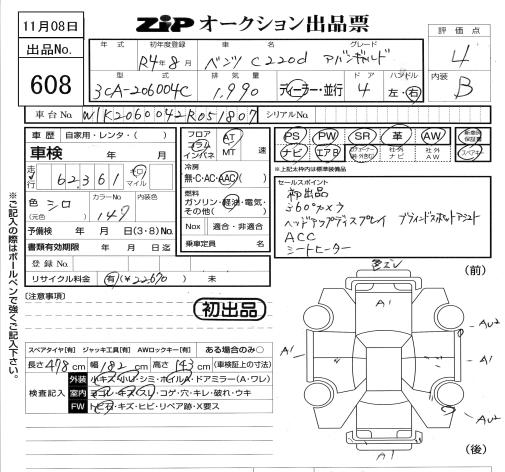 11月08日
ZIP オークション出品票
評価点
4
出品No.
608
年式
初年度登録
車名
グレード
R4年8月
ベンツ C220d アバンギャルド
内装
B
型式
排気量
ドア
ハンドル
3CA-206004C
1,990
ディーラー・並行
4
左・右
車台No.
W1K2060042R051807
シリアルNo.
車歴
自家用・レンタ( )
フロア
コラム
インパネ
AT
MT
速
車検
年 月
走行
62,361
キロ
マイル
冷房
無・C・AC・AAC( )
色
(元色)
シロ
カラーNo
147
内装色
燃料
ガソリン・軽油・電気・
その他( )
予備検
年 月 日(3・8)No.
Nox
適合・非適合
書類有効期限
年 月 日迄
乗車定員
名
登録No.
リサイクル料金
有(¥22,670)
未
PS
PW
SR
革
AW
新車時
保証書
ナビ
エアB
社外
ナビ
社外
AW
スペアキー
※上記太枠内は標準装備品
セールスポイント
初出品
360°カメラ
ヘッドアップディスプレイ ブラインドスポットアシスト
ACC
シートヒーター
※ご記入の際はボールペンで強くご記入下さい。
[注意事項]
初出品
色ズレ
(前)
A1
AU2
A1
A1
AU2
A1
(後)
スペアタイヤ[有]
ジャッキ工具[有]
AWロックキー[有]
ある場合のみ○
長さ478cm
幅182cm
高さ143cm
(車検証上の寸法)
検査記入
外装
小キズ・小U・シミ・ホイルA・ドアミラー(A・ワレ)
室内
ヨゴレ・キズ・スレ・コゲ・穴・キレ・破れ・ウキ
FW
トビ石・キズ・ヒビ・リペア跡・X要ス